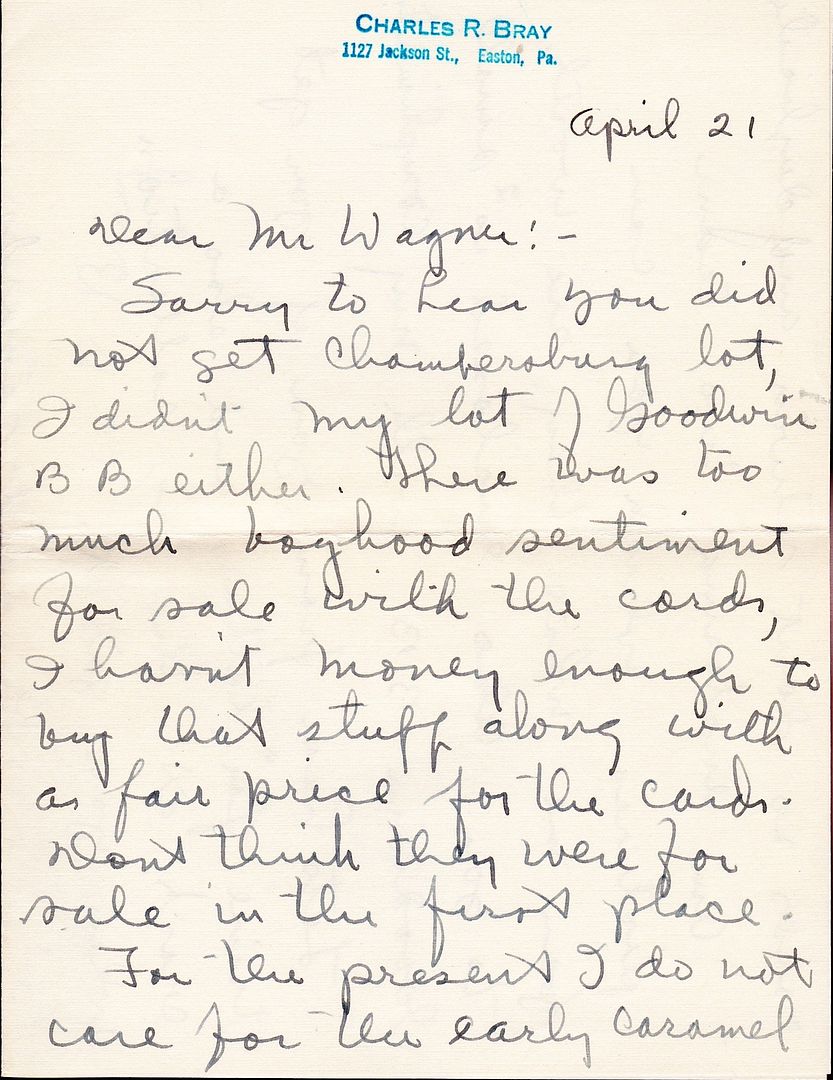 CHARLES R. BRAY
1127 Jackson St., Easton, Pa.
April 21
Dear Mr Wagner! -
Sorry to hear you did
not get Chambersburg lot,
I didn't my lot of Goodwin
B B either. There was too
much boyhood sentiment
for sale with the cards,
I havn't money enough to
buy that stuff along with
a fair price for the cards.
Dont think they were for
sale in the first place.
For the present I do not
care for the early caramel